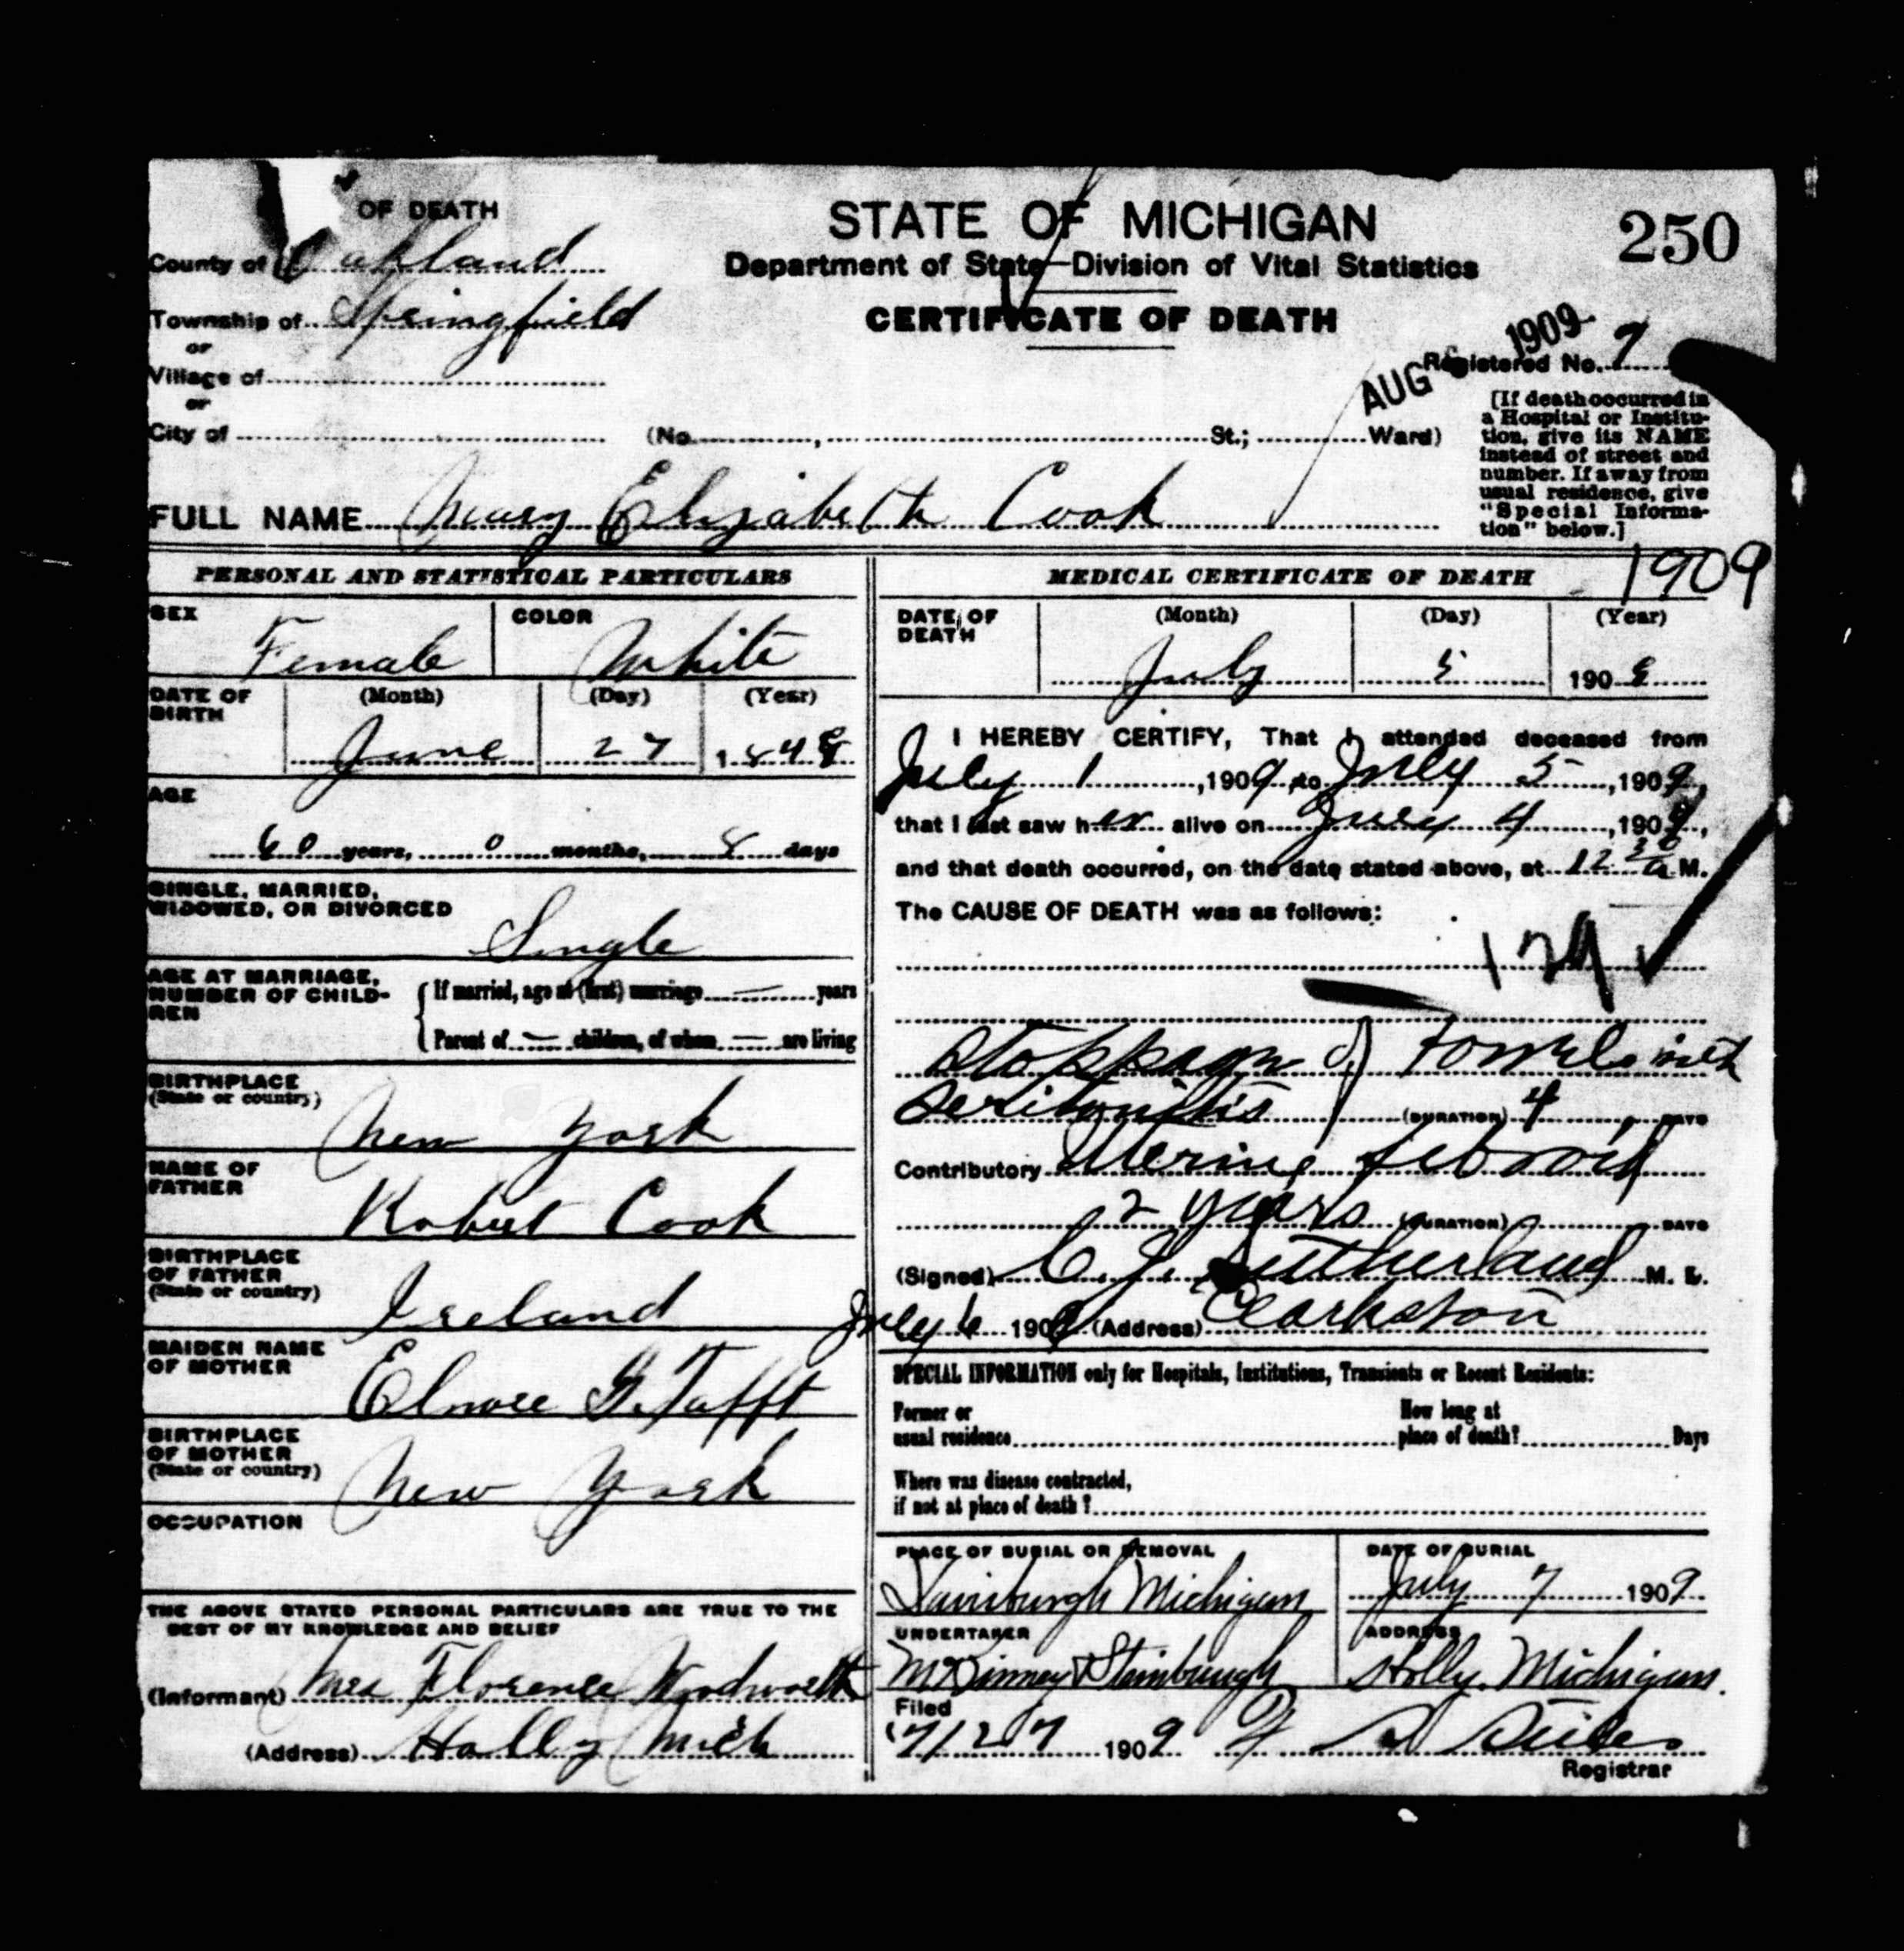 OF DEATH
County of Oakland
Township of Springfield
or
Village of
or
City of
STATE OF MICHIGAN
Department of State—Division of Vital Statistics
CERTIFICATE OF DEATH
250
AUG 1909
Registered No. 7
(No. , St.; Ward)
[If death occurred in
a Hospital or Institu-
tion, give its NAME
instead of street and
number. If away from
usual residence, give
"Special Informa-
tion" below.]
FULL NAME Mary Elizabeth Cook
PERSONAL AND STATISTICAL PARTICULARS
SEX
Female
COLOR
White
DATE OF
BIRTH
(Month) (Day) (Year)
June 27 184
AGE
60 years, 0 months, 8 days
SINGLE, MARRIED,
WIDOWED, OR DIVORCED
Single
AGE AT MARRIAGE,
NUMBER OF CHILD-
REN
If married, age at (first) marriage — years
Parent of — children, of whom — are living
BIRTHPLACE
(State or country)
New York
NAME OF
FATHER
Robert Cook
BIRTHPLACE
OF FATHER
(State or country)
Ireland
MAIDEN NAME
OF MOTHER
G. Tafft
BIRTHPLACE
OF MOTHER
(State or country)
New York
OCCUPATION
THE ABOVE STATED PERSONAL PARTICULARS ARE TRUE TO THE
BEST OF MY KNOWLEDGE AND BELIEF
(Informant) Mrs Florence Woodworth
(Address) Holly Mich
MEDICAL CERTIFICATE OF DEATH
1909
DATE OF
DEATH
(Month) (Day) (Year)
July 5 190
I HEREBY CERTIFY, That I attended deceased from
July 1 , 1909, to July 5 , 1909,
that I last saw her alive on July 4 , 1909,
and that death occurred, on the date stated above, at 12 30 a M.
The CAUSE OF DEATH was as follows:
129 ✓
Stoppage of Bowels with
Peritonitis (DURATION) 4 DAYS
Contributory Uterine fibroid
2 years (DURATION) DAYS
(Signed) C. J. Sutherland M. D.
July 6 1909 (Address) Clarkston
SPECIAL INFORMATION only for Hospitals, Institutions, Transients or Recent Residents:
Former or
usual residence
How long at
place of death? Days
Where was disease contracted,
if not at place of death?
PLACE OF BURIAL OR REMOVAL
Michigan
DATE OF BURIAL
July 7 1909
UNDERTAKER
McKinney & Stainbaugh
ADDRESS
Holly, Michigan.
Filed
7/27 1909
Registrar